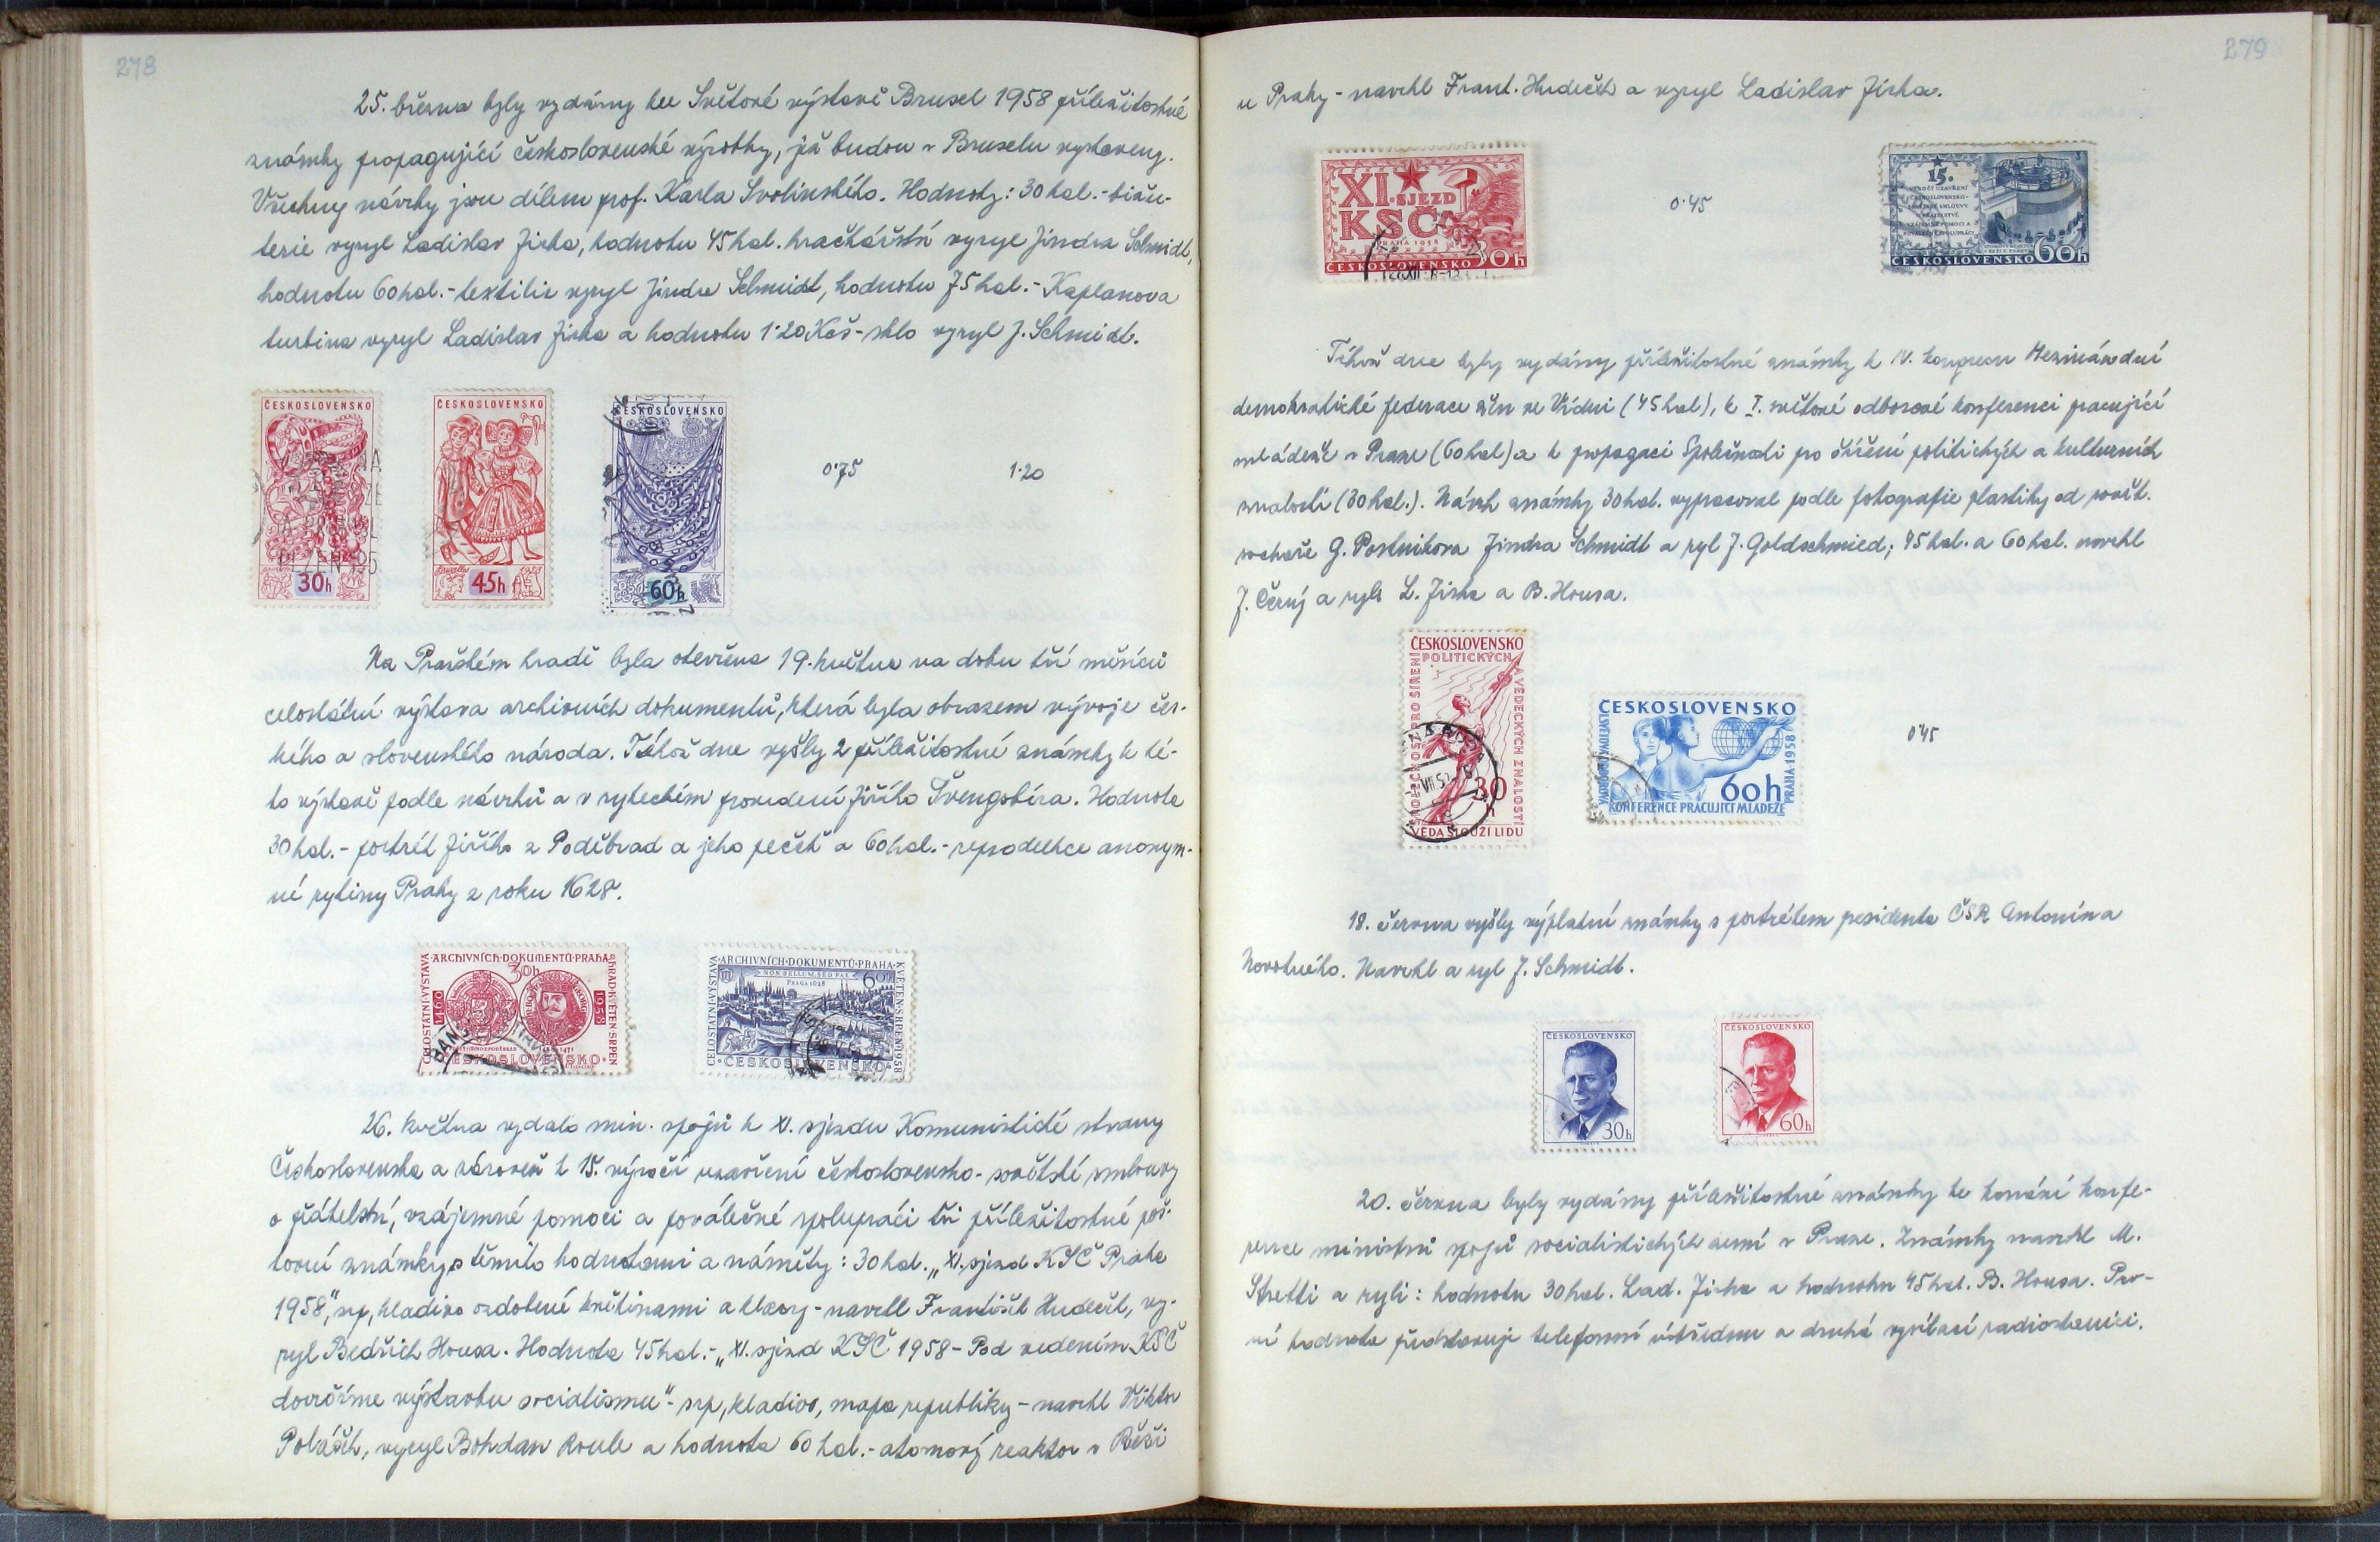 278
25. března byly vydány ke Světové výstavě Brusel 1958 příležitostné
známky propagující československé výrobky, jež budou v Bruselu vystaveny.
Všechny návrhy jsou dílem prof. Karla Svolinského. Hodnoty: 30 hal. - bižu-
terie vyryl Ladislav Jirka, hodnotu 45 hal. hračkářství vyryl Jindra Schmidt,
hodnotu 60 hal. - textilie vyryl Jindra Schmidt, hodnotu 75 hal. - Kaplanova
turbina vyryl Ladislav Jirka a hodnotu 1·20 Kčs - sklo vyryl J. Schmidt.
ČESKOSLOVENSKO
30h
ČESKOSLOVENSKO
45h
ČESKOSLOVENSKO
60h
0·75
1·20
Na Pražském hradě byla otevřena 19. května na dobu tří měsíců
celostátní výstava archivních dokumentů, která byla obrazem vývoje čes-
kého a slovenského národa. Téhož dne vyšly 2 příležitostné známky k té-
to výstavě podle návrhů a v ryteckém provedení Jiřího Švengsbíra. Hodnota
30 hal. - portrét Jiřího z Poděbrad a jeho pečeť a 60 hal. - reprodukce anonym-
né rytiny Prahy z roku 1628.
CELOSTÁTNÍ·VÝSTAVA·ARCHIVNÍCH·DOKUMENTŮ·PRAHA·HRAD·KVĚTEN·SRPEN
30h
1460
1958
ČESKOSLOVENSKO
CELOSTÁTNÍ·VÝSTAVA·ARCHIVNÍCH·DOKUMENTŮ·PRAHA·KVĚTEN·SRPEN·1958
PRAGA 1628
60h
ČESKOSLOVENSKO
26. května vydalo min. spojů k XI. sjezdu Komunistické strany
Československa a zároveň k 15. výročí uzavření československo-sovětské smlouvy
o přátelství, vzájemné pomoci a poválečné spolupráci tři příležitostné poš-
tovní známky s těmito hodnotami a náměty: 30 hal. „XI. sjezd KSČ Praha
1958", srp, kladivo ozdobené květinami a klasy - navrhl František Hudeček, vy-
ryl Bedřich Housa. Hodnota 45 hal. - „XI. sjezd KSČ 1958 - Pod vedením KSČ
dovršíme výstavbu socialismu" - srp, kladivo, mapa republiky - navrhl Viktor
Poláček, vyryl Bohdan Roule a hodnota 60 hal. - atomový reaktor v Řeži
279
u Prahy - navrhl Frant. Hudeček a vyryl Ladislav Jirka.
XI. SJEZD
KSČ
PRAHA 1958
ČESKOSLOVENSKO 30h
0·45
15.
VÝROČÍ UZAVŘENÍ
ČESKOSLOVENSKO-
ČESKOSLOVENSKO 60h
Téhož dne byly vydány příležitostné známky k IV. kongresu Mezinárodní
demokratické federace žen ve Vídni (45 hal), k I. světové odborové konferenci pracující
mládeže v Praze (60 hal) a k propagaci Společnosti pro šíření politických a kulturních
znalostí (30 hal.). Návrh známky 30 hal. vypracoval podle fotografie plastiky od sovět.
sochaře G. Postnikova Jindra Schmidt a ryl J. Goldschmied; 45 hal. a 60 hal. navrhl
J. Černý a ryli L. Jirka a B. Housa.
ČESKOSLOVENSKO
SPOLEČNOST PRO ŠÍŘENÍ POLITICKÝCH A VĚDECKÝCH ZNALOSTÍ
30h
VĚDA SLOUŽÍ LIDU
ČESKOSLOVENSKO
60h
KONFERENCE PRACUJÍCÍ MLÁDEŽE
PRAHA·1958
0·45
18. června vyšly výplatní známky s portrétem presidenta ČSR Antonína
Novotného. Navrhl a ryl J. Schmidt.
ČESKOSLOVENSKO
30h
ČESKOSLOVENSKO
60h
20. června byly vydány příležitostné známky ke konání konfe-
rence ministrů spojů socialistických zemí v Praze. Známky navrhl M.
Stretti a ryli: hodnotu 30 hal. Lad. Jirka a hodnotu 45 hal. B. Housa. Prv-
ní hodnota představuje telefonní ústřednu a druhá vysílací radiostanici.